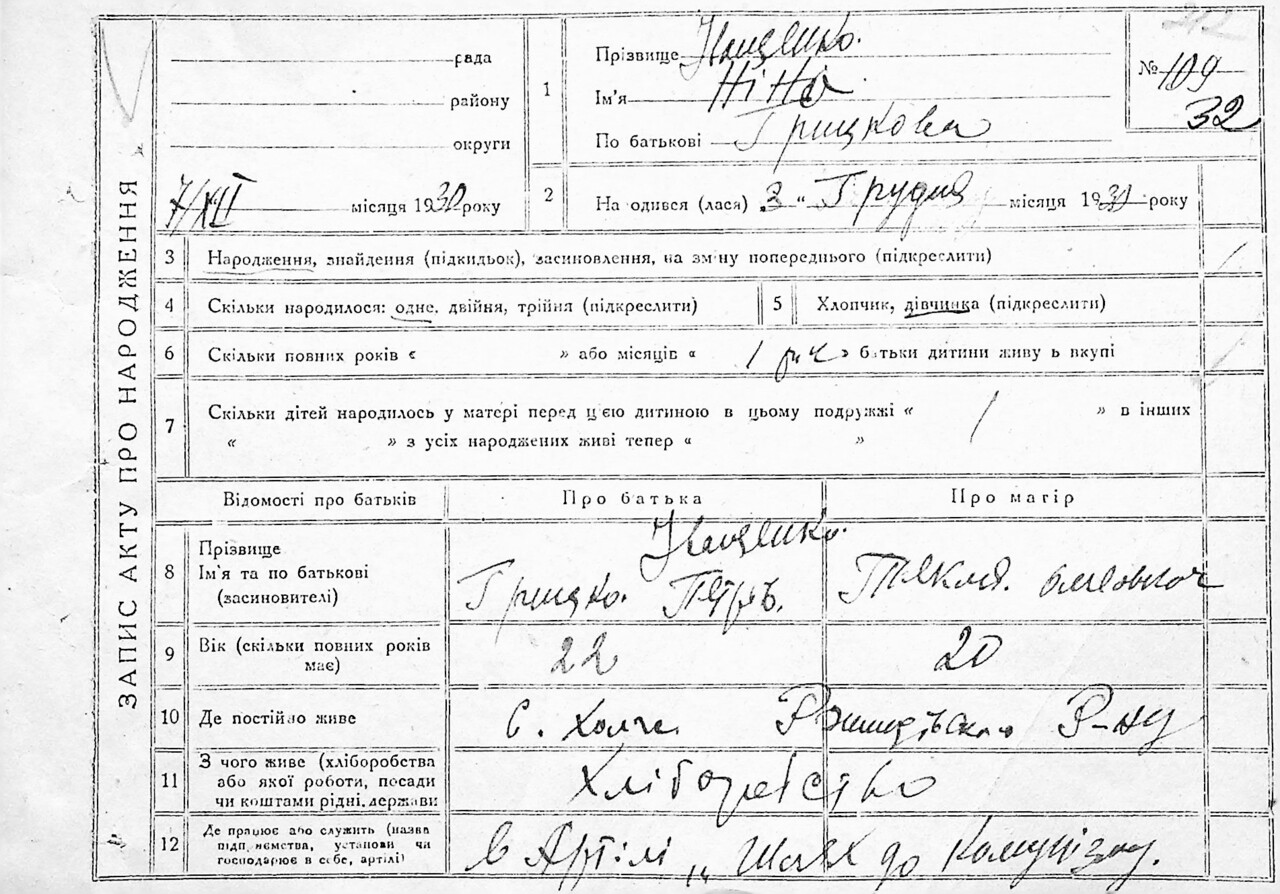 ЗАПИС АКТУ ПРО НАРОДЖЕННЯ
рада
району
округи
7/XII місяця 1930 року
1 Прізвище Іващенко.
Ім'я Ніна
По батькові Грицкова
№ 109
32
2 На одився (лася) 3 „ Грудня місяця 1930 року
3 Народження, знайдення (підкидьок), засиновлення, на зміну попереднього (підкреслити)
4 Скільки народилося: одне, двійня, трійня (підкреслити)
5 Хлопчик, дівчинка (підкреслити)
6 Скільки повних років « » або місяців « 1 рік » батьки дитини живу ь вкупі
7 Скільки дітей народилось у матері перед цією дитиною в цьому подружжі « / » в інших
« » з усіх народжених живі тепер « »
Відомості про батьків Про батька Про матір
8 Прізвище
Ім'я та по батькові
(засиновителі)
Іващенко.
Грицко. Петръ. Текля.
9 Вік (скільки повних років
має)
22 20
10 Де постійно живе с. Р-ну
11 З чого живе (хліборобства
або якої роботи, посади
чи коштами рідні, держави
Хліборобство
12 Де працює або служить (назва
підп ємства, установи чи
господарює в себе, артілі)
в Артілі „ Шлях до Комунізму.